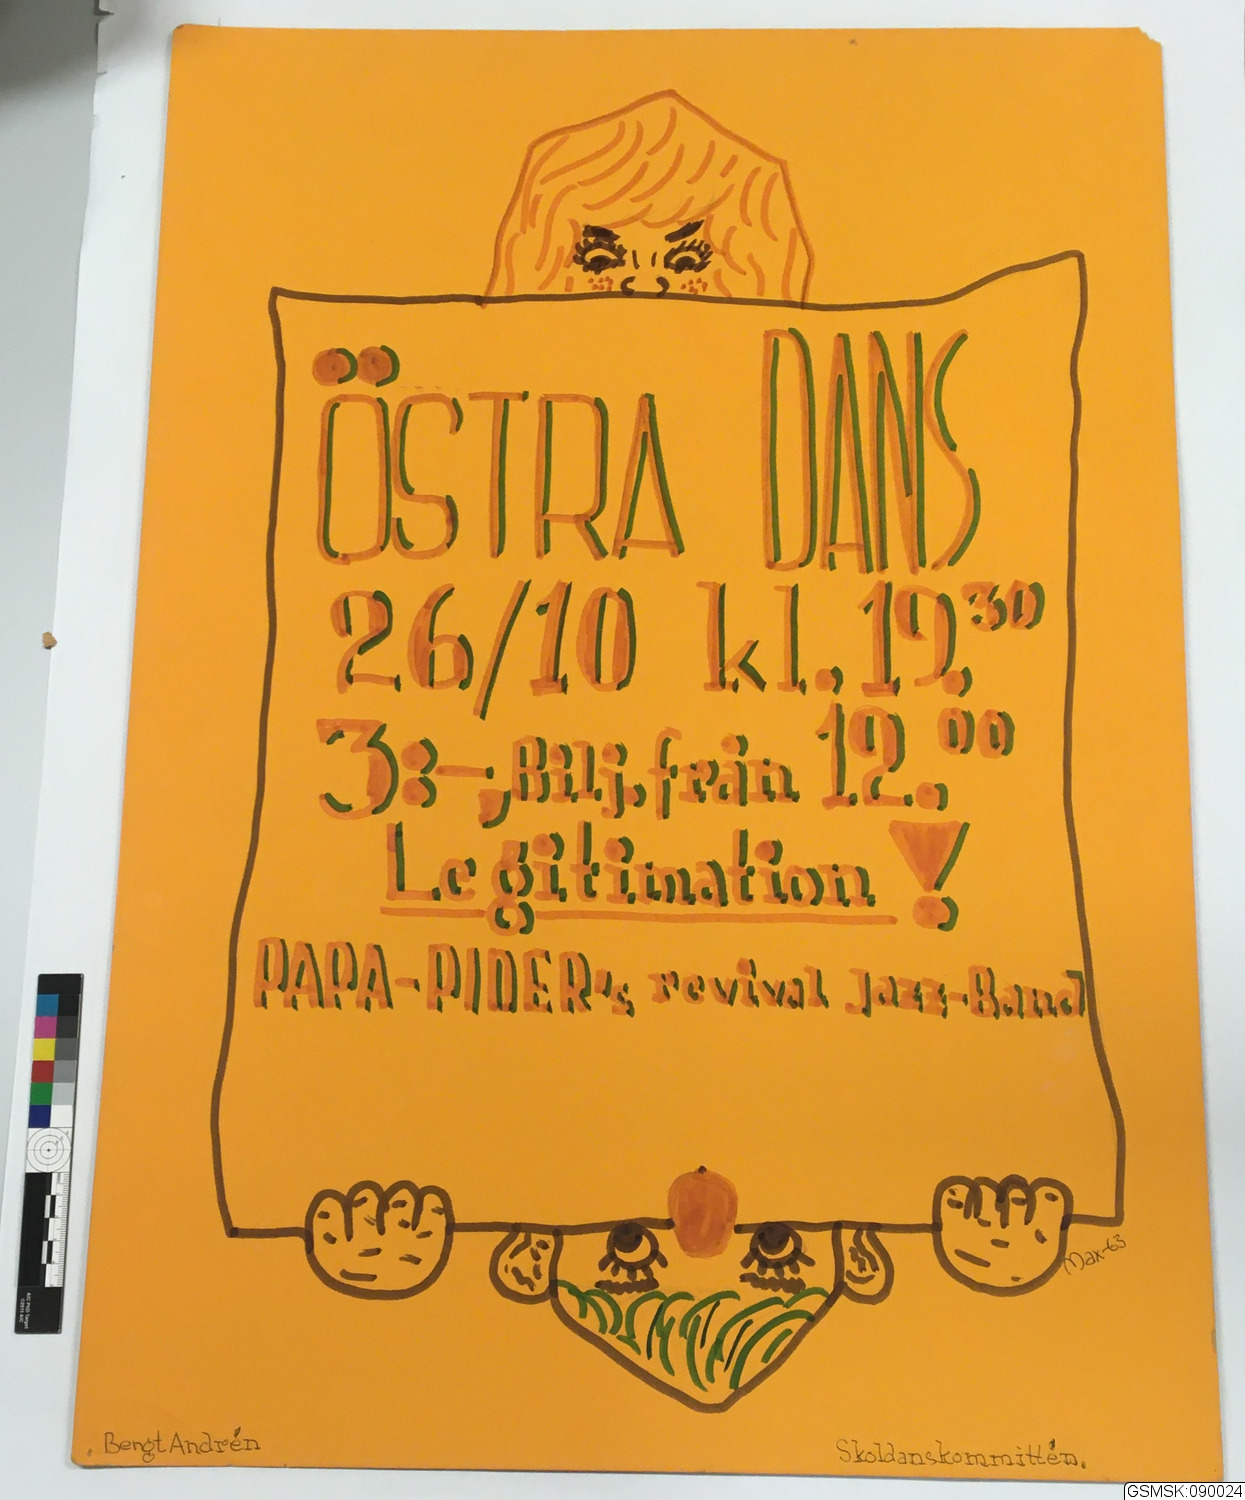 ÖSTRA DANS
26/10 kl. 19.30
3:-, Bilj. från 12.00
Legitimation!
PAPA-PIDER's revival Jazz-Band
Max-63
Bengt Andrén
Skoldanskommittén.
GSMSK:090024